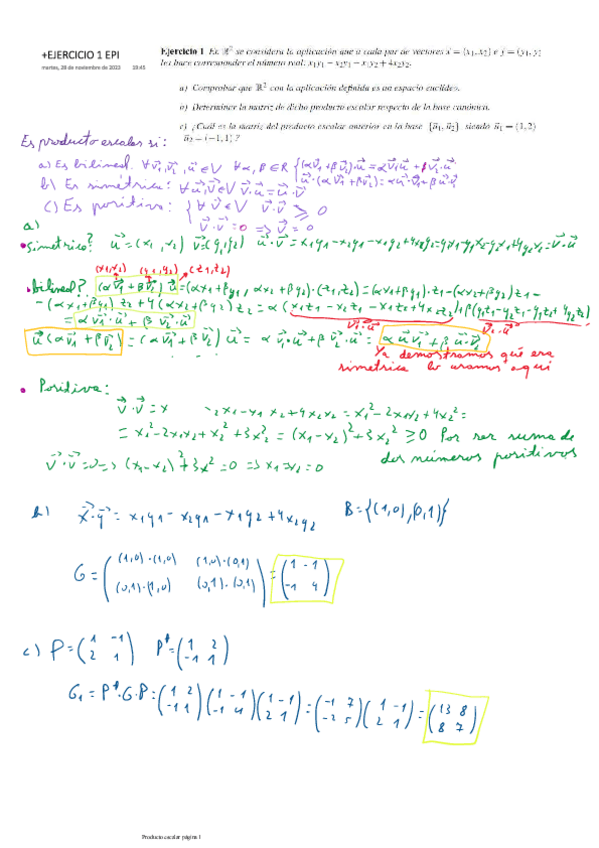 +EJERCICIO 1 EPI
martes, 28 de noviembre de 2023 19:45
Ejercicio 1 En ℝ² se considera la aplicación que a cada par de vectores x⃗ = (x₁, x₂) e y⃗ = (y₁, y₂
les hace corresponder el número real: x₁y₁ − x₂y₁ − x₁y₂ + 4x₂y₂.
a) Comprobar que ℝ² con la aplicación definida es un espacio euclídeo.
b) Determinar la matriz de dicho producto escalar respecto de la base canónica.
c) ¿Cuál es la matriz del producto escalar anterior en la base {u⃗₁, u⃗₂} siendo u⃗₁ = (1, 2)
u⃗₂ = (−1, 1)?
Es producto escalar si:
a) Es bilineal. ∀v⃗₁, v⃗₂, u⃗ ∈ V ∀α, β ∈ R { (αv⃗₁+βv⃗₂)·u⃗ = αv⃗₁u⃗ + βv⃗₂·u⃗
u⃗·(αv⃗₁+βv⃗₂) = αu⃗·v⃗₁+βu⃗·v⃗₂
b) Es simétrica: ∀u⃗, v⃗ ∈ V v⃗·u⃗ = u⃗·v⃗
c) Es positiva: { ∀v⃗ ∈ V v⃗·v⃗ ⩾ 0
v⃗·v⃗ = 0 => v⃗ = 0
a)
• simetrico? u⃗ = (x₁, x₂) v⃗ = (y₁, y₂) u⃗·v⃗ = x₁y₁ − x₂y₁ − x₁y₂ + 4x₂y₂ = y₁x₁ − y₁x₂ − y₂x₁ + 4y₂x₂ = v⃗·u⃗
(x₁,x₂) (y₁,y₂) (z₁,z₂)
• bilineal? (αv⃗₁ + βv⃗₂) u⃗ = (αx₁ + βy₁, αx₂ + βy₂)·(z₁,z₂) = (αx₁+βy₁)·z₁ − (αx₂+βy₂) z₁ −
− (αx₁ + βy₁) z₂ + 4 (αx₂ + βy₂) z₂ = α (x₁z₁ − x₂z₁ − x₁z₂ + 4x₂z₂) + β (y₁z₁ − y₂z₁ − y₁z₂ + 4y₂z₂)
= αv⃗₁·u⃗ + βv⃗₂·u⃗ v⃗₁·u⃗ v⃗₂·u⃗
u⃗ (αv⃗₁ + βv⃗₂) = (αv⃗₁ + βv⃗₂) u⃗ = αv⃗₁·u⃗ + βv⃗₂·u⃗ = αu⃗v⃗₁ + βu⃗·v⃗₂
Ya demostramos que era
simetrica lo usamos aqui
• Positiva:
v⃗·v⃗ = x − x₂x₁ − x₁x₂ + 4x₂x₂ = x₁² − 2x₁x₂ + 4x₂² =
= x₁² − 2x₁x₂ + x₂² + 3x₂² = (x₁ − x₂)² + 3x₂² ⩾ 0 Por ser suma de
dos números positivos
v⃗·v⃗ = 0 => (x₁ − x₂)² + 3x² = 0 => x₁ = x₂ = 0
b) x⃗·y⃗ = x₁y₁ − x₂y₁ − x₁y₂ + 4x₂y₂ B = {(1,0),(0,1)}
G = ( (1,0)·(1,0) (1,0)·(0,1)
(0,1)·(1,0) (0,1)·(0,1) ) = ( 1 −1
−1 4 )
c) P = ( 1 −1
2 1 ) Pᵗ = ( 1 2
−1 1 )
G₁ = Pᵗ·G·P = ( 1 2
−1 1 ) ( 1 −1
−1 4 ) ( 1 −1
2 1 ) = ( −1 7
−2 5 ) ( 1 −1
2 1 ) = ( 13 8
8 7 )
Producto escalar página 1